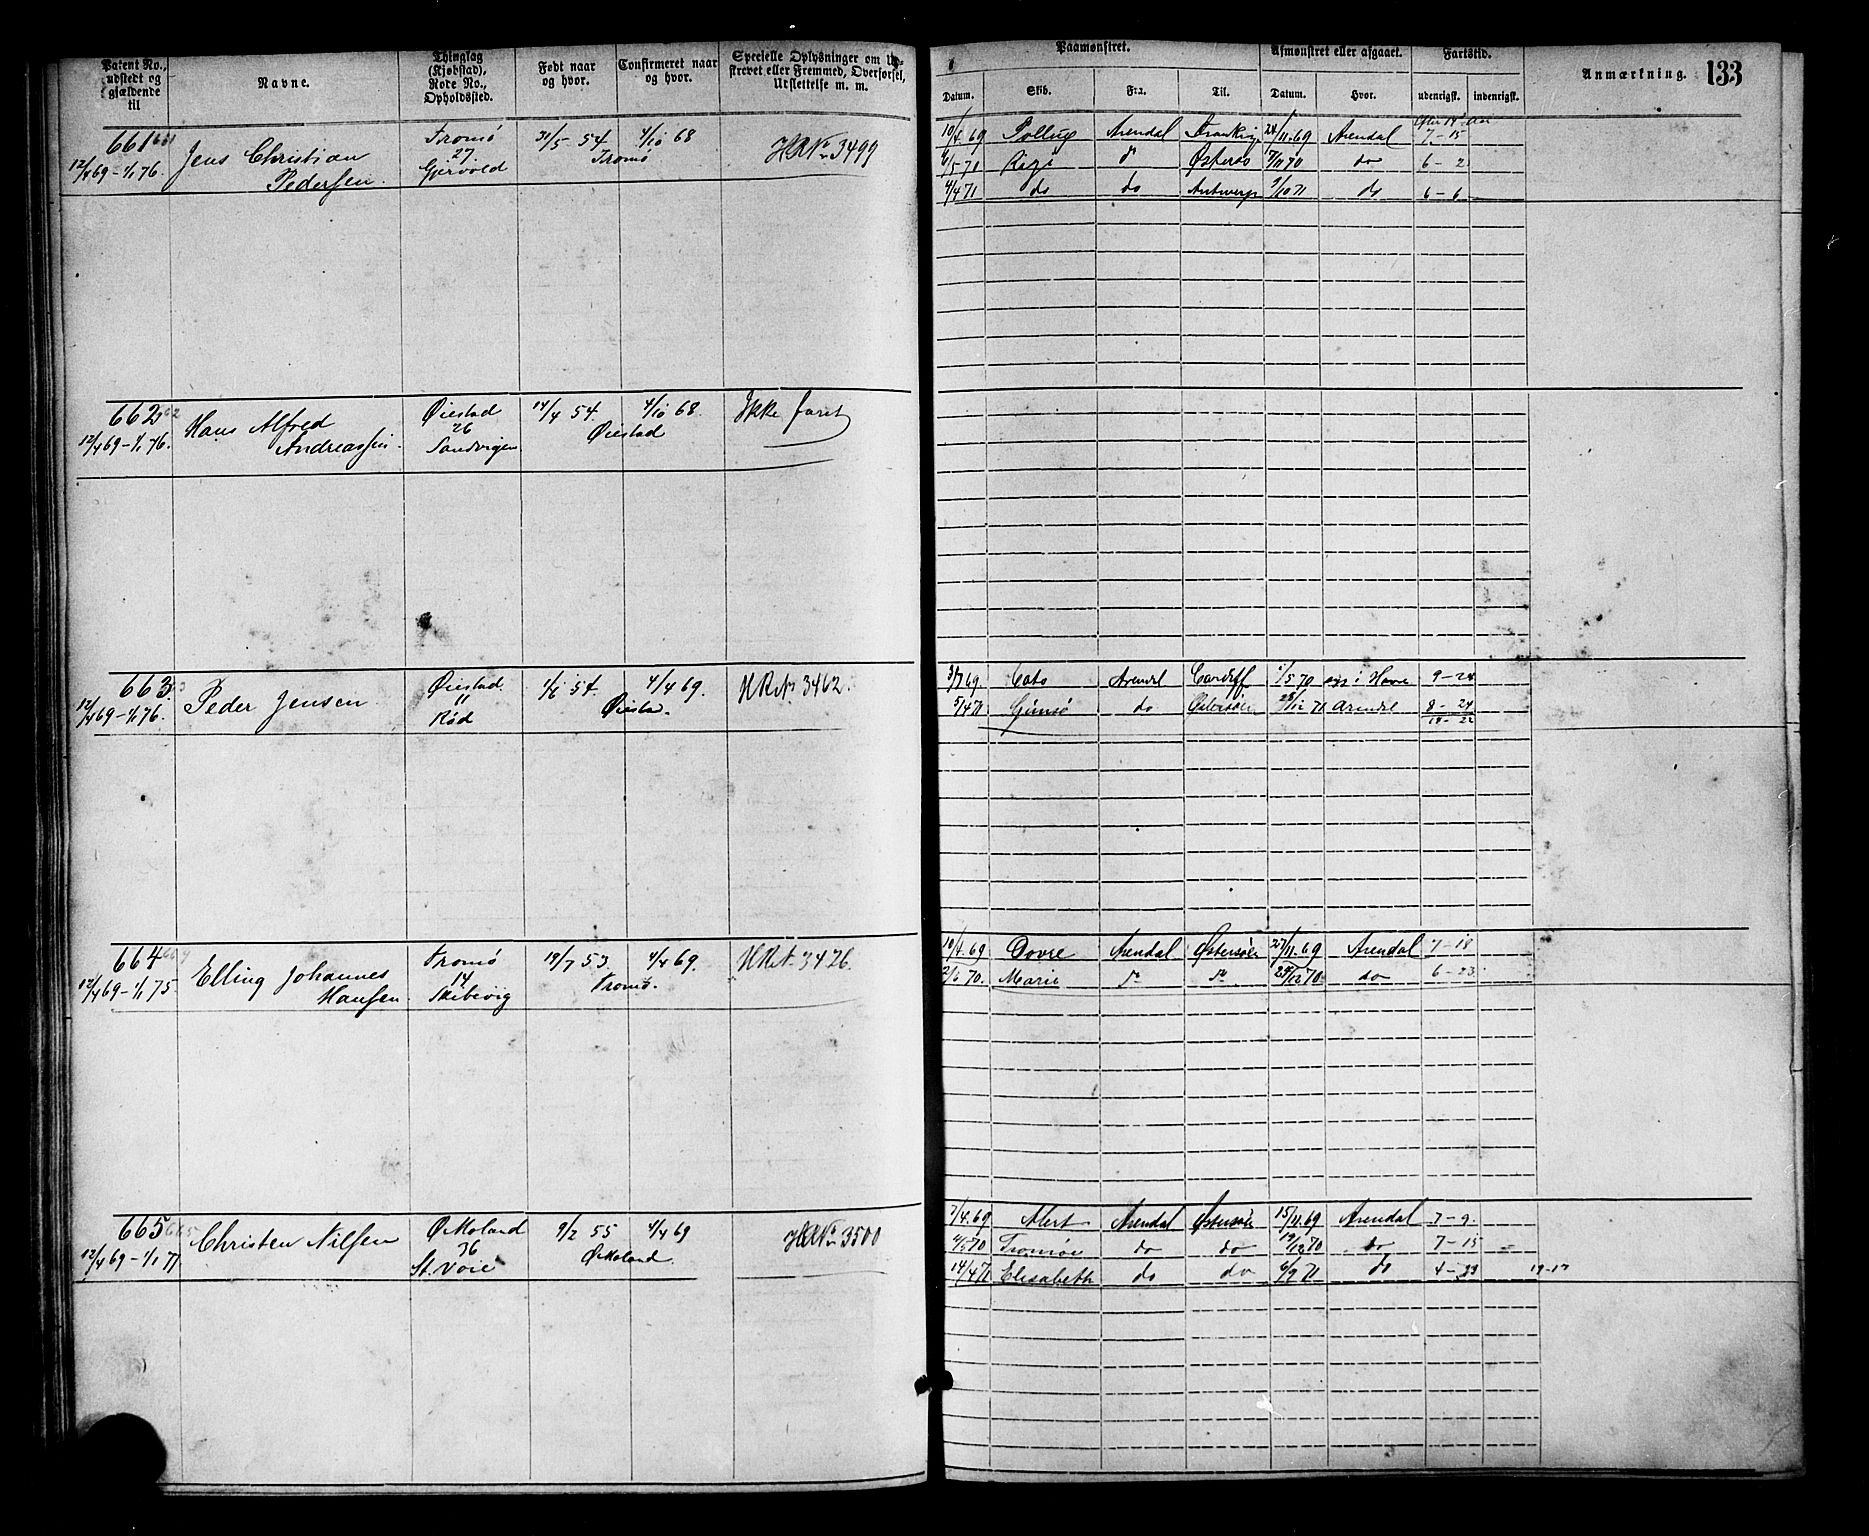 Patent No., udstedt og gjældende til
Navne.
Thinglag (Kjøbstad), Rode No., Opholdssted.
Født naar og hvor.
Confirmeret naar og hvor.
Specielle Oplysninger om
strøget eller Fremmed, Overførsel, Udslettelse m. m.
Paamønstret.
Afmønstret eller afgaaet.
Fartstid.
Anmærkning.
133
Datum. Skib. Fra. Til. Datum. Hvor. udenrigsk. indenrigsk.
661 Jens Christian Tromø 31/5 54 4/10 68 3499
12/4 69 - 1/1 76. Pedersen. 27 Tromø
Gjervold
10/4 69 Pollux Arendal 24/11 69 Arendal 7 - 15
6/5 70 do 6 - 2
4/4 71 do do Antwerp 9/10 71 do 6 - 6
662 Hans Alfred Øiestad 14/4 54 4/10 68. Ikke faret
12/4 69 - 1/1 76. Andreassen. 26 Øiestad
Sandvigen
663 Peder Jensen Øiestad 54. 4/4 69. 3462.
12/4 69 - 1/1 76. 11
Rød
3/7 69. Cato Arendl Cardiff 1/5 70 9 - 24
5/4 71 do 71 Arendl 8 - 24
664 Elling Johannes Tromø 19/7 53 4/4 69. 3426.
12/4 69 - 1/1 75 Hansen. 14 Tromø.
Skibevig
10/4 69 Dovre Arendal Østersøen 27/11 69 Arendal 7 - 18
2/6 70. Marie 29/12 70. do 6 - 23
665 Christen Nilsen Ø Moland 9/2 55 4/4 69 3500
12/4 69 - 1/1 77 36 Ø Moland.
St. Voie
7/4 69 Alert Arendal Østersøen 15/11 69 Arendal 7 - 9.
4/5 70 Tromøe do do 19/12 70 do 7 - 15
14/4 71 Elisabeth do do 6/9 71 do 4 - 23 19 - 17